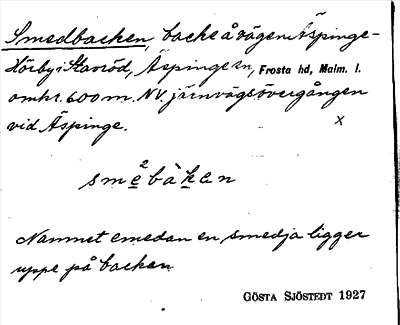 Smedbacken, backe å vägen Äspinge-
Hörby i Starröd, Äspinge sn, Frosta hd, Malm. l.
omkr. 600 m. NV. järnvägsövergången
vid Äspinge. x
sme²bàken
Namnet emedan en smedja ligger
uppe på backen
GÖSTA SJÖSTEDT 1927